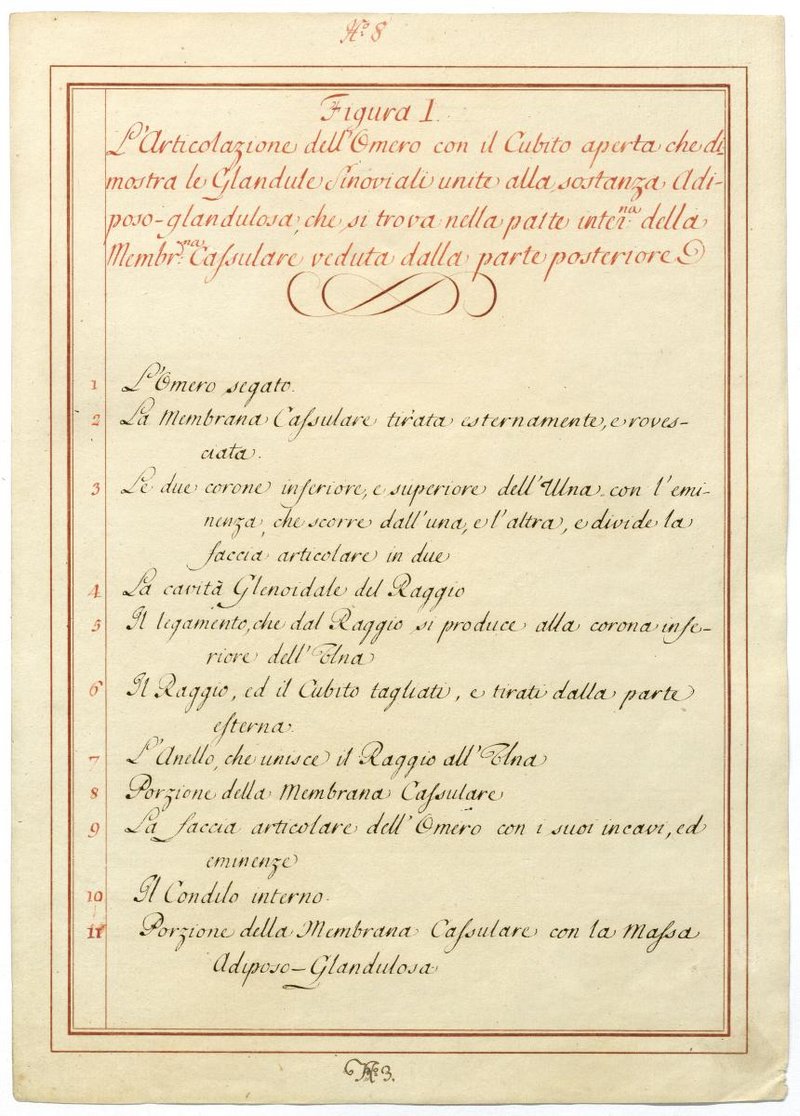 N.º 8
Figura I.
L'Articolazione dell'Omero con il Cubito aperta che di
mostra le Glandule Sinoviali unite alla sostanza Adi-
poso-glandulosa, che si trova nella parte inter.na della
Membr.na Cassulare veduta dalla parte posteriore
1 L'Omero segato.
2 La Membrana Cassulare tirata esternamente, e roves-
ciata.
3 Le due corone inferiore, e superiore dell'Ulna con l'emi-
nenza, che scorre dall'una, e l'altra, e divide la
faccia articolare in due
4 La cavità Glenoidale del Raggio
5 Il legamento, che dal Raggio si produce alla corona infe-
riore dell'Ulna
6 Il Raggio, ed il Cubito tagliati, e tirati dalla parte
esterna.
7 L'Anello, che unisce il Raggio all'Ulna
8 Porzione della Membrana Cassulare
9 La faccia articolare dell'Omero con i suoi incavi, ed
eminenze
10 Il Condilo interno.
11 Porzione della Membrana Cassulare con la Massa
Adiposo-Glandulosa
3.